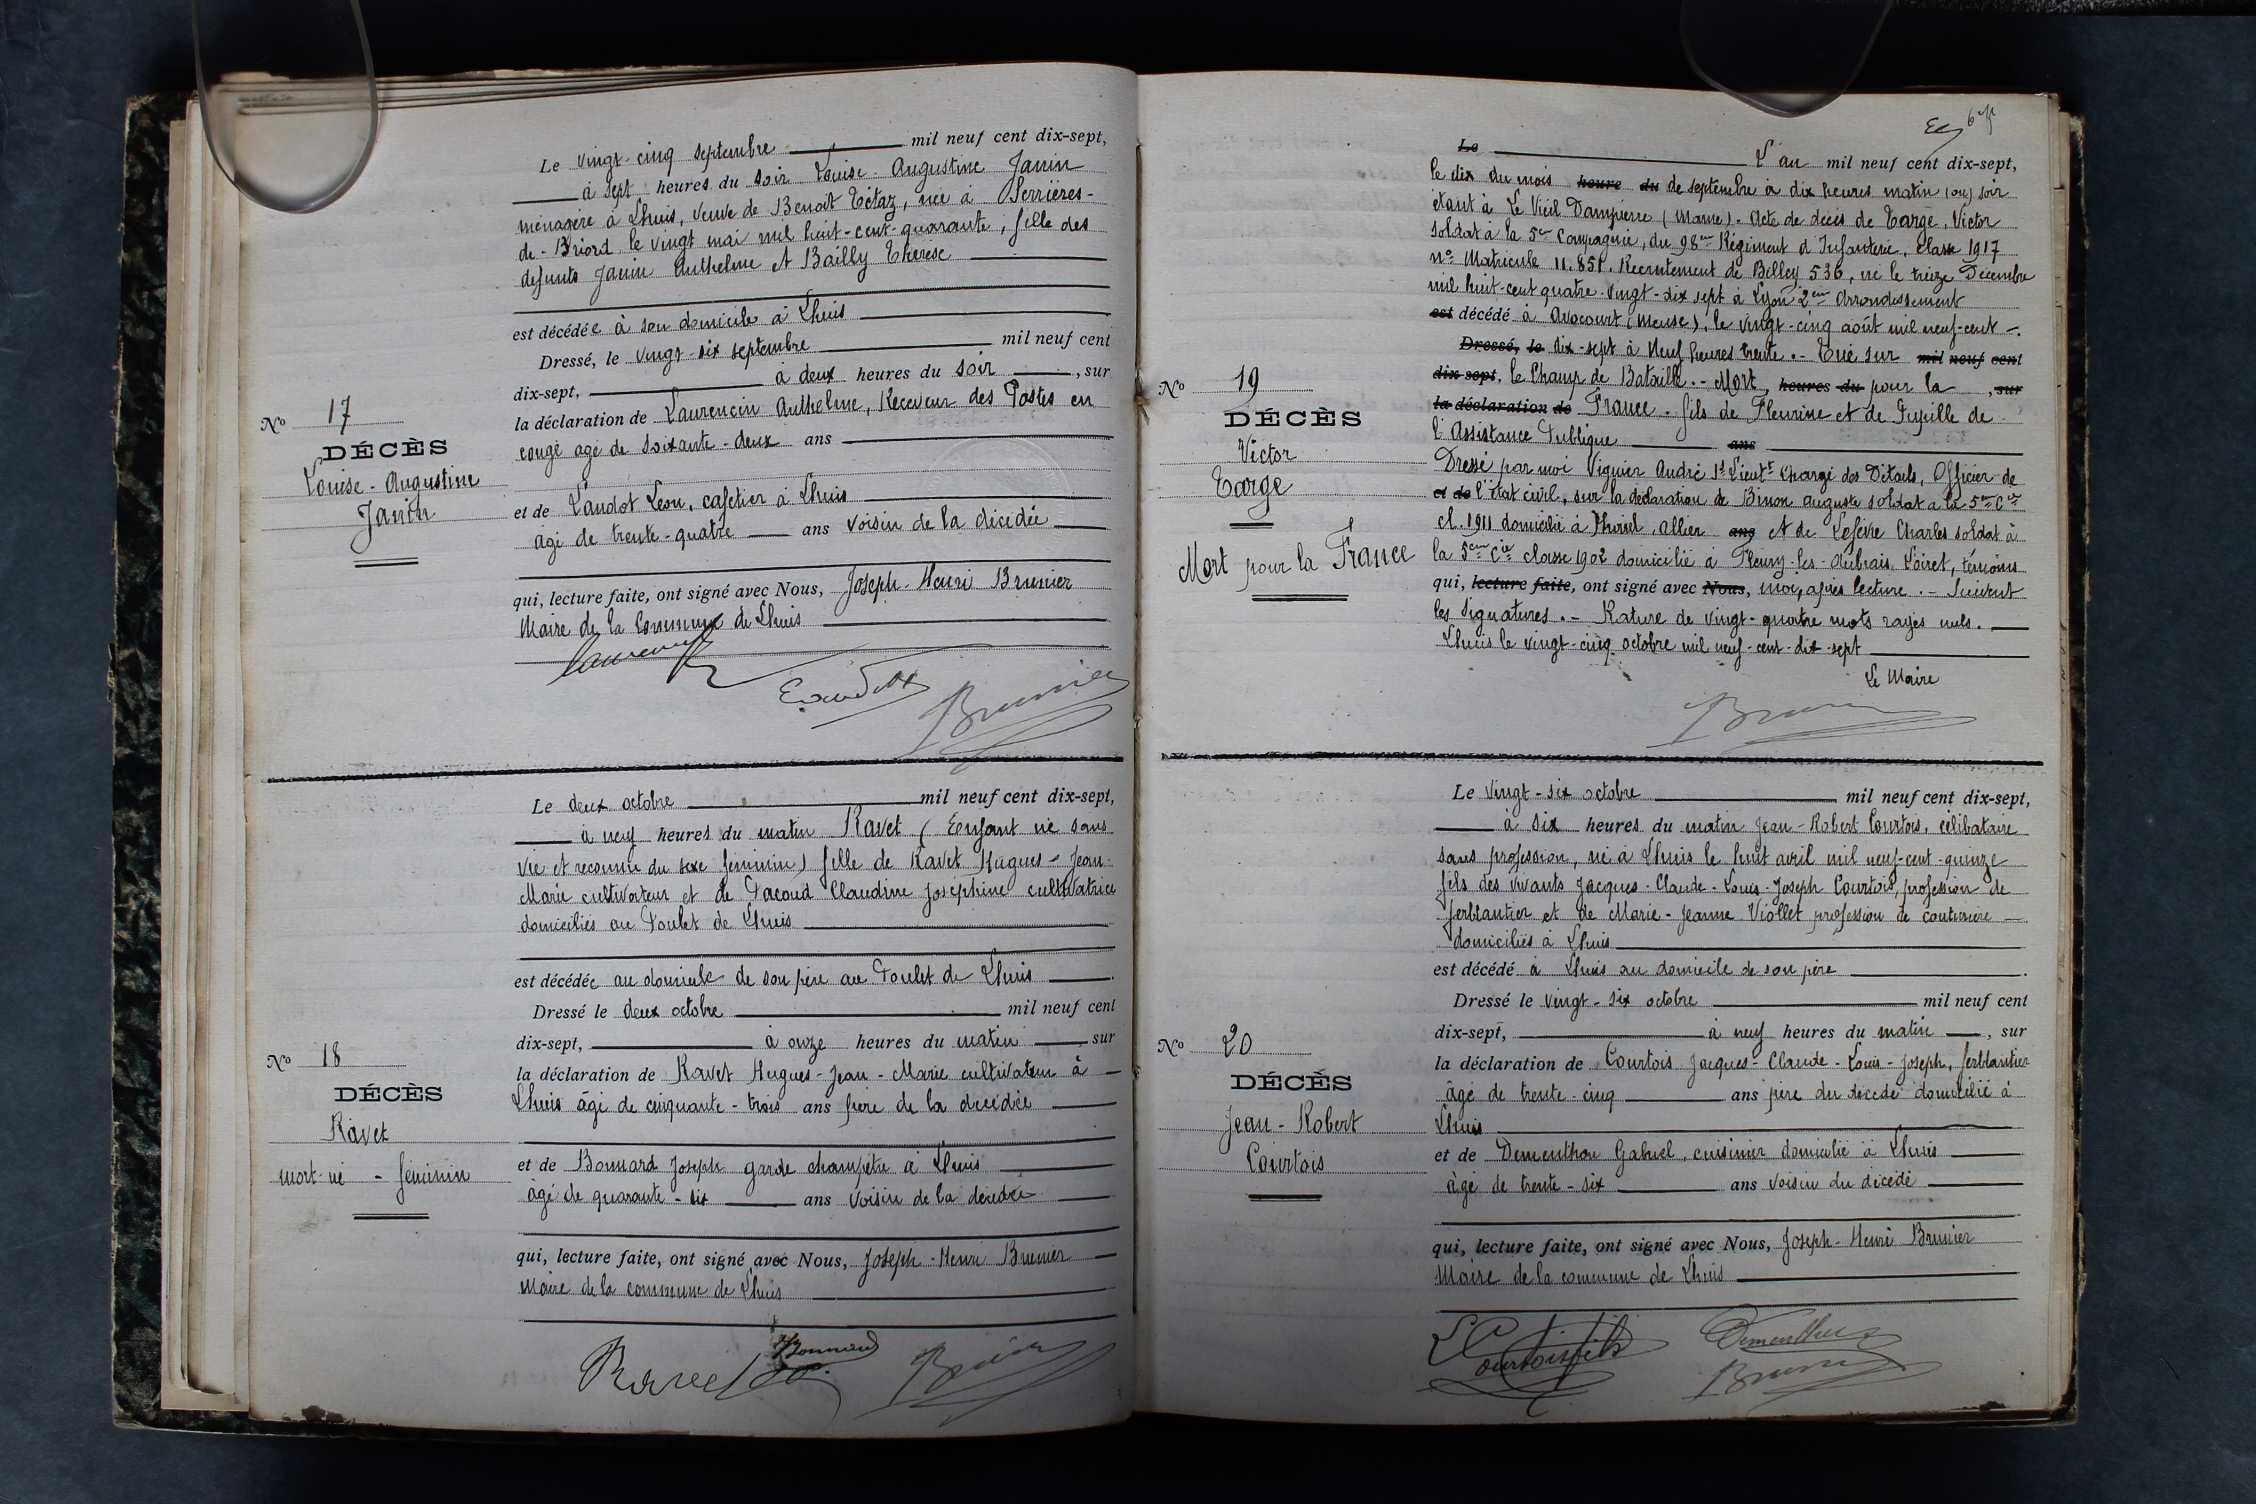 Le vingt-cinq septembre mil neuf cent dix-sept,
à sept heures du soir Louise-Augustine Janin
ménagère à Lhuis, veuve de Benoit Tétaz, née à Serrières-
de-Briord le vingt mai mil huit-cent-quarante, fille des
defunts Janin Anthelme et Bailly Thérèse
est décédée à son domicile à Lhuis
Dressé, le vingt-six septembre mil neuf cent
dix-sept, à deux heures du soir, sur
No 17
la déclaration de Laurencin Anthelme, Receveur des Postes en
DÉCÈS
congé agé de soixante-deux ans
Louise-Augustine
Janin
et de Landot Léon, cafetier à Lhuis
âgé de trente-quatre ans voisin de la décédée
qui, lecture faite, ont signé avec Nous, Joseph-Henri Brunier
Maire de la Commune de Lhuis
Brunier
Le deux octobre mil neuf cent dix-sept,
à neuf heures du matin Ravet (Enfant né sans
vie et reconnu du sexe féminin) fille de Ravet Hugues-Jean-
Marie cultivateur et de Pacoud Claudine Joséphine cultivatrice
domiciliés au Poulet de Lhuis
est décédée au domicile de son père au Poulet de Lhuis
Dressé le deux octobre mil neuf cent
dix-sept, à onze heures du matin sur
No 18
la déclaration de Ravet Hugues-Jean-Marie cultivateur à
DÉCÈS
Lhuis âgé de cinquante-trois ans père de la décédée
Ravet
mort-né - féminin
et de Bonnard Joseph garde champêtre à Lhuis
âgé de quarante-six ans voisin de la décédée
qui, lecture faite, ont signé avec Nous, Joseph-Henri Brunier
Maire de la commune de Lhuis
Ravet Bonnard Brunier
6
Le L'an mil neuf cent dix-sept,
le dix du mois heure du de septembre à dix heures matin (ou) soir
étant à Le Vieil Dampierre (Marne). Acte de décès de Targe, Victor
soldat à la 5e Compagnie, du 98me Régiment d'Infanterie. Classe 1917
no Matricule 11.851, Recrutement de Belley 536, né le treize Décembre
mil huit-cent quatre-vingt-dix sept à Lyon 2em Arrondissement
est décédé à Avocourt (Meuse), le vingt-cinq août mil neuf-cent -
Dressé, le dix-sept à Neuf heures trente. - Tué sur mil neuf cent
dix sept, le Champ de Bataille. - Mort, heures du pour la, sur
No 19
la déclaration de France. fils de Fleurine et de Pupille de
DÉCÈS
l'Assistance Publique ans
Victor
Targe
Mort pour la France
Dressé par moi Viguier André St Lieutt Chargé des Détails, Officier de
et de l'état civil, sur la déclaration de Binon Auguste soldat à la 5me Cie
cl. 1911 domicilié à Hurriel, Allier ans et de Lefèvre Charles soldat à
la 5em Cie classe 1902 domicilié à Fleury-les-Aubrais, Loiret, témoins
qui, lecture faite, ont signé avec Nous, moi, après lecture. - Suivent
les signatures. - Rature de vingt-quatre mots rayés nuls.
Lhuis le vingt-cinq octobre mil neuf-cent-dix-sept
Le Maire
Brunier
Le vingt-six octobre mil neuf cent dix-sept,
à six heures du matin Jean-Robert Courtois, célibataire
sans profession, né à Lhuis le huit avril mil neuf-cent-quinze
fils des vivants Jacques-Claude-Louis-Joseph Courtois, profession de
ferblantier et de Marie-Jeanne Viollet profession de couturière
domiciliés à Lhuis
est décédé à Lhuis au domicile de son père
Dressé le vingt-six octobre mil neuf cent
dix-sept, à neuf heures du matin, sur
No 20
la déclaration de Courtois Jacques-Claude-Louis-Joseph, ferblantier
DÉCÈS
âgé de trente-cinq ans père du décédé domicilié à
Jean-Robert
Lhuis
Courtois
et de Dementhon Gabriel, cuisinier domicilié à Lhuis
âgé de trente-six ans voisin du décédé
qui, lecture faite, ont signé avec Nous, Joseph-Henri Brunier
Maire de la commune de Lhuis
Courtois fils Dementhon
Brunier